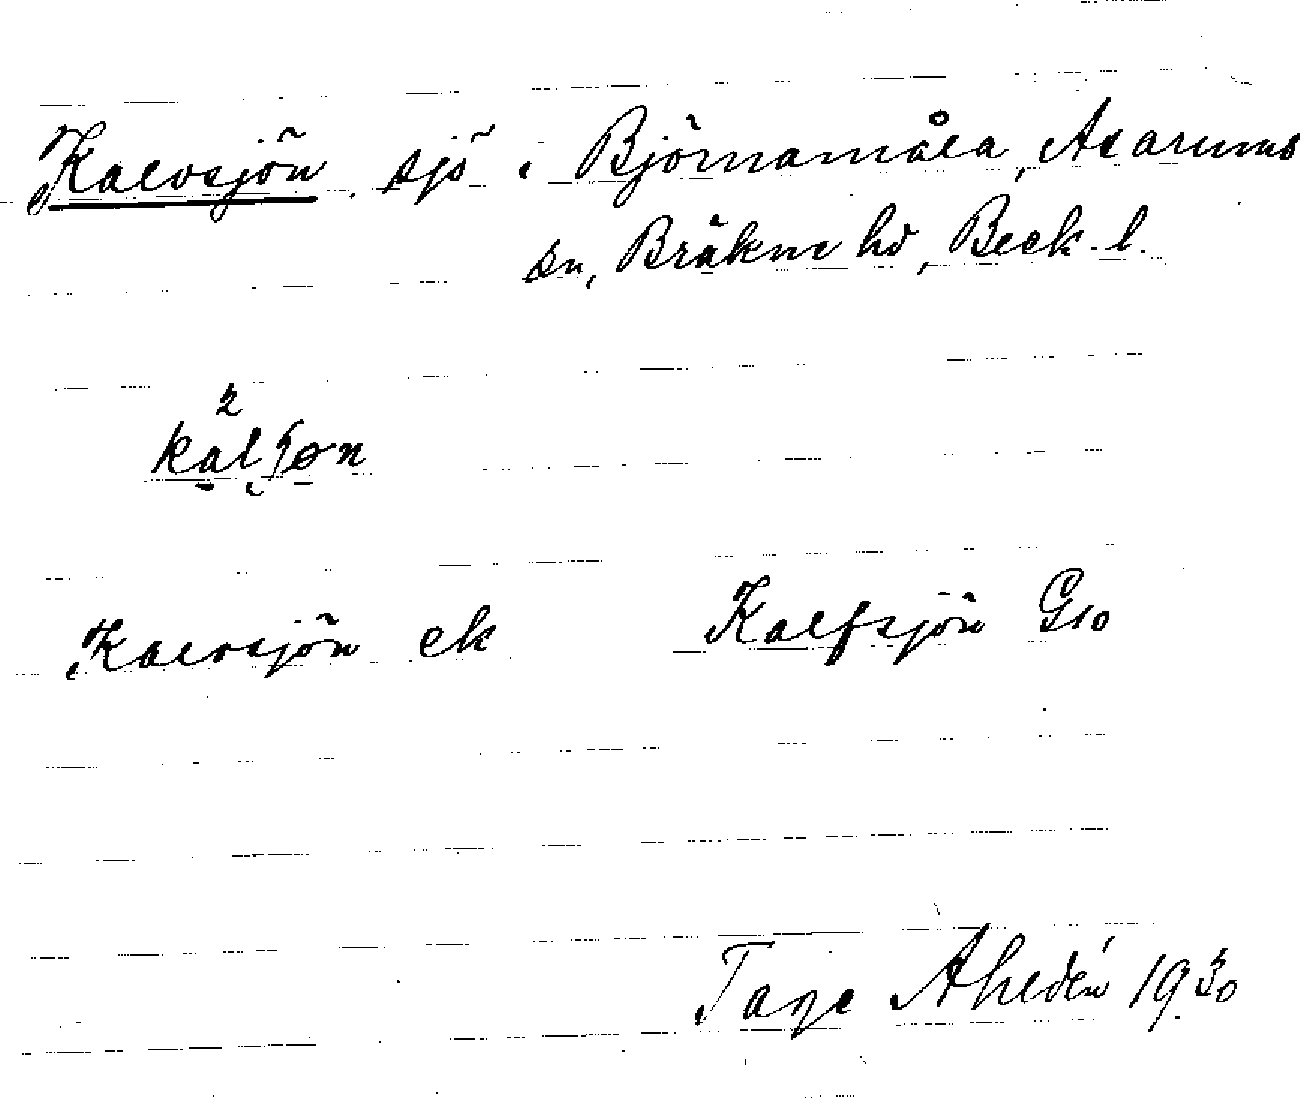 Kalvsjön sjö i Björnamåla, Asarums
sn, Bräkne hd, Blek. l.
2
kalʃøn
Kalvsjön ek Kalfsjön Gs10
Tage Ahldén 1930